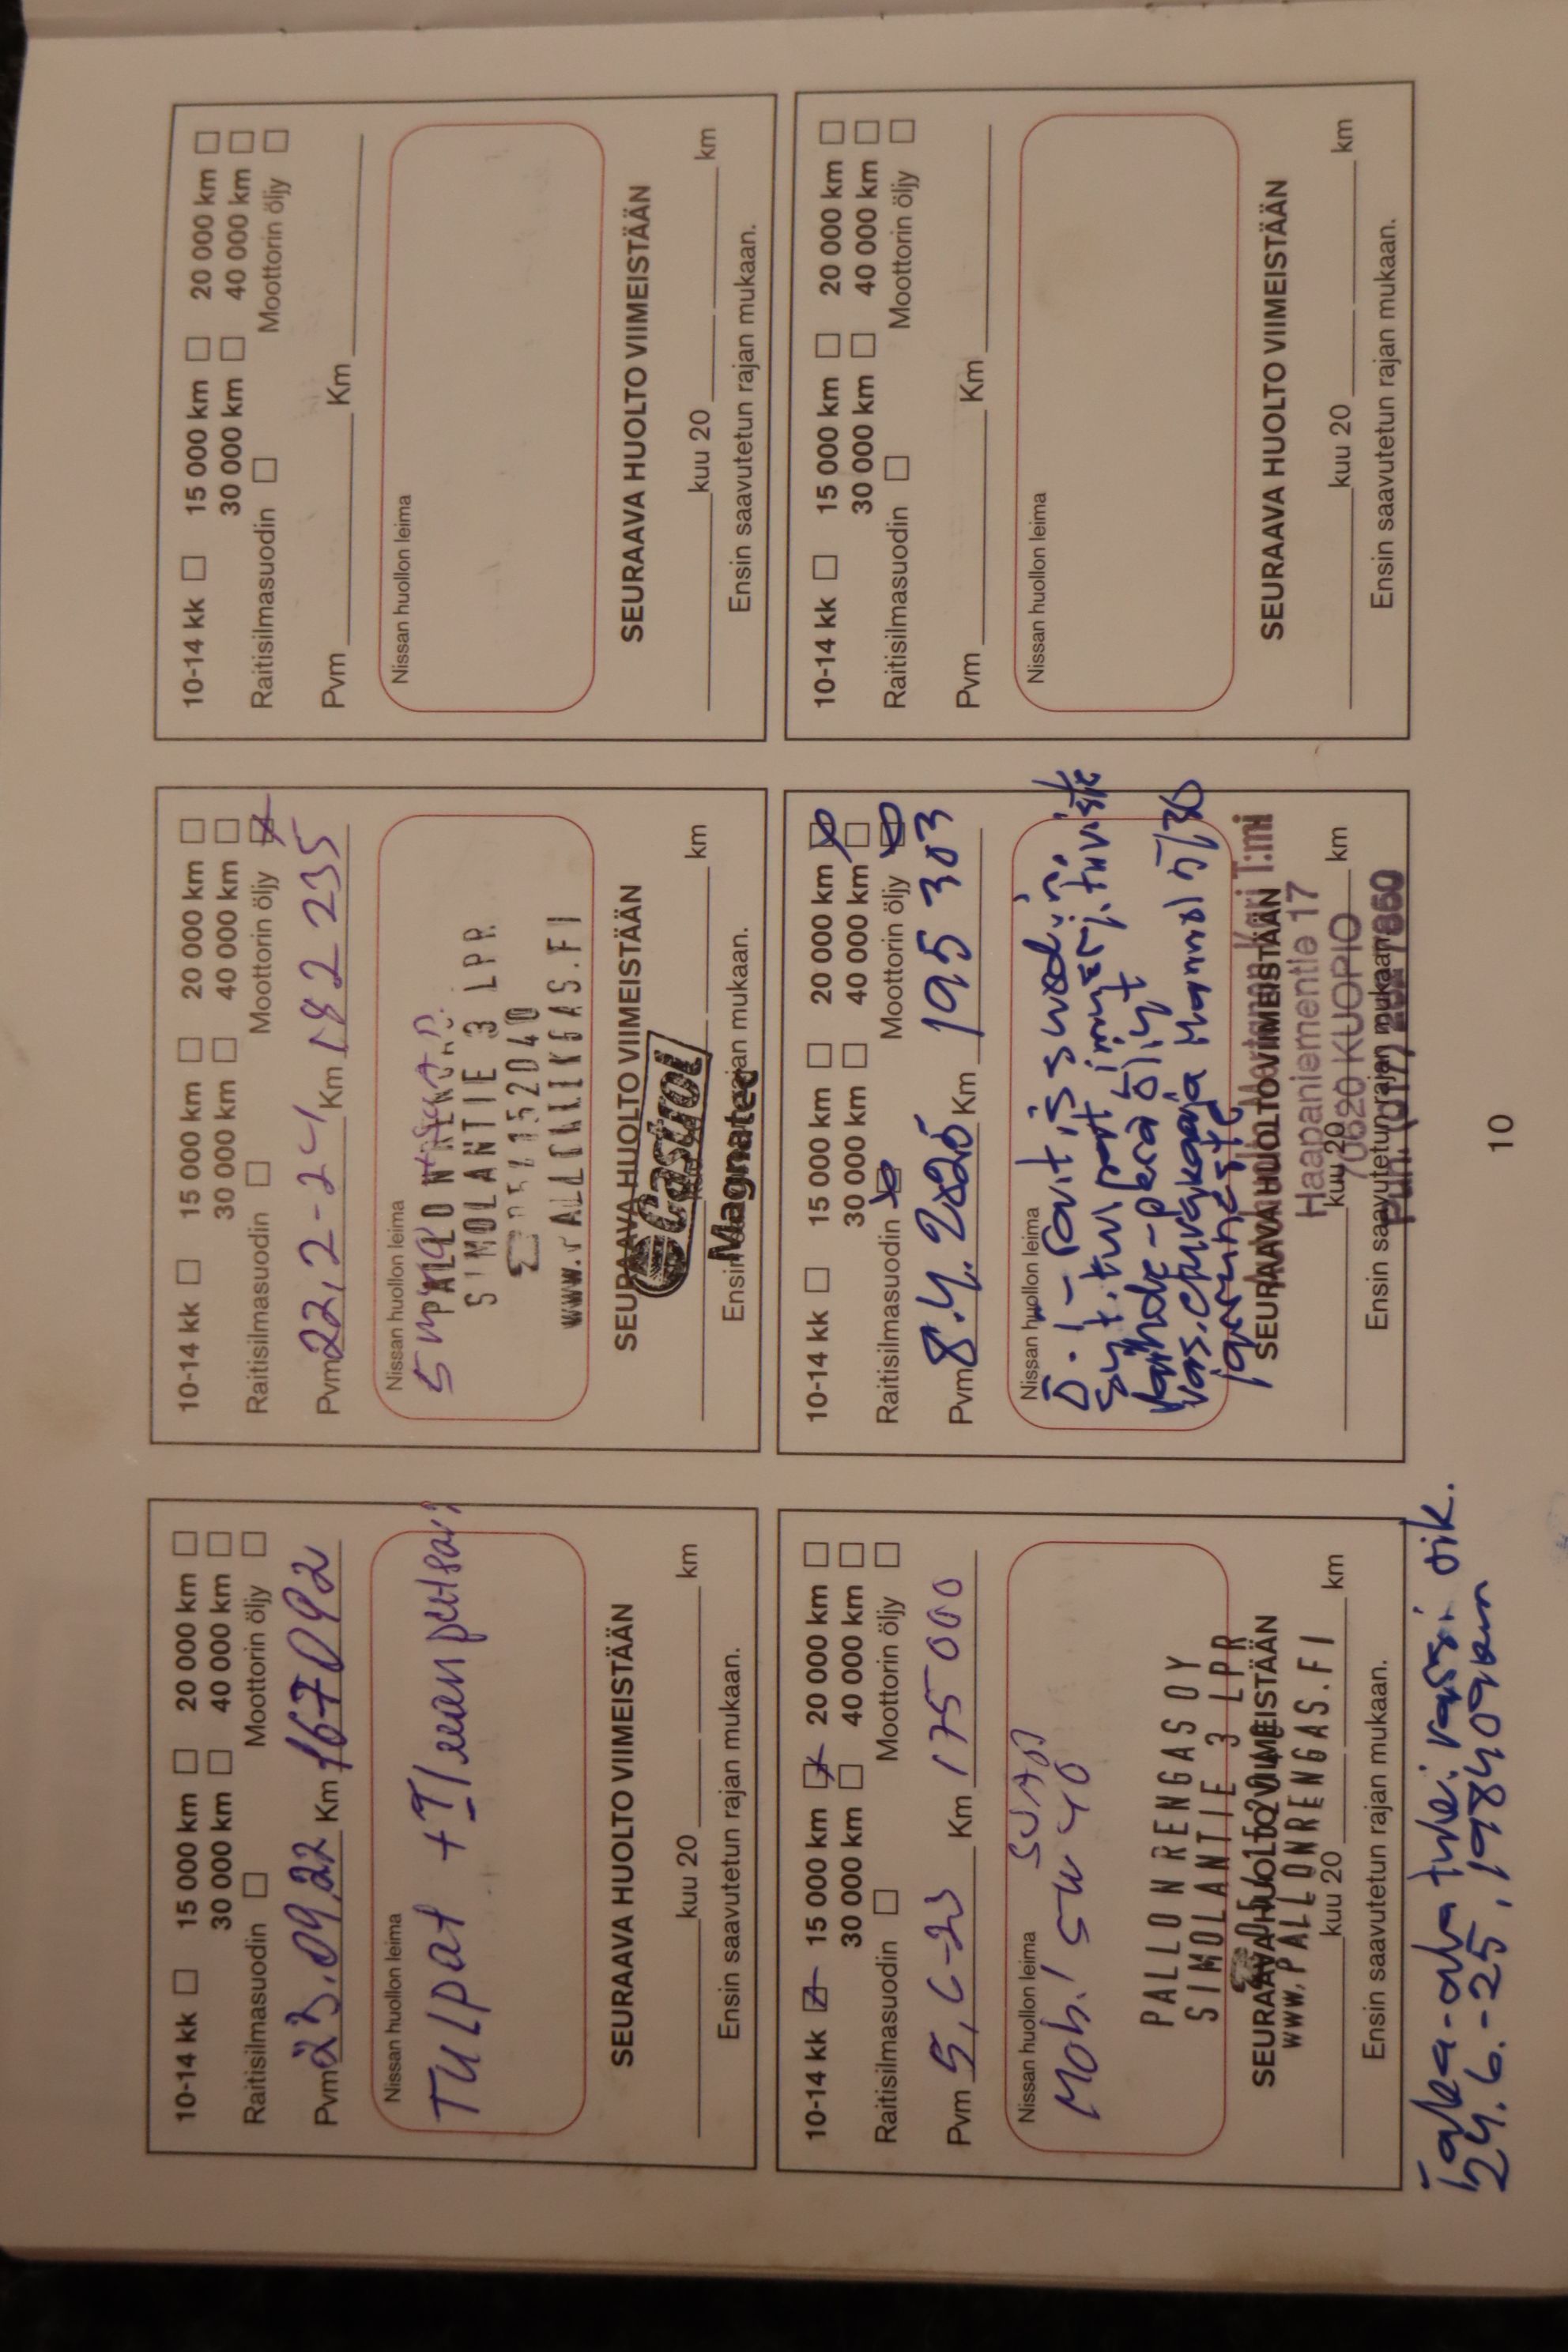 10-14 kk 15 000 km 20 000 km
30 000 km 40 000 km
Raitisilmasuodin Moottorin öljy
Pvm 23.09.22 Km 167092
Nissan huollon leima
TULPAT +
SEURAAVA HUOLTO VIIMEISTÄÄN
kuu 20 km
Ensin saavutetun rajan mukaan.
10-14 kk 15 000 km 20 000 km
30 000 km 40 000 km
Raitisilmasuodin Moottorin öljy
Pvm 22,2-24 Km 182 235
Nissan huollon leima
SIMOLANTIE 3 LPR
SEURAAVA HUOLTO VIIMEISTÄÄN
Castrol
Magnatec
km
Ensin saavutetun rajan mukaan.
10-14 kk 15 000 km 20 000 km
30 000 km 40 000 km
Raitisilmasuodin Moottorin öljy
Pvm Km
Nissan huollon leima
SEURAAVA HUOLTO VIIMEISTÄÄN
kuu 20 km
Ensin saavutetun rajan mukaan.
10-14 kk 15 000 km 20 000 km
30 000 km 40 000 km
Raitisilmasuodin Moottorin öljy
Pvm 5,6-23 Km 175 000
Nissan huollon leima
Mobil 5W40
PALLON RENGAS OY
SIMOLANTIE 3 LPR
SEURAAVA HUOLTO VIIMEISTÄÄN
WWW.PALLONRENGAS.FI
kuu 20 km
Ensin saavutetun rajan mukaan.
10-14 kk 15 000 km 20 000 km
30 000 km 40 000 km
Raitisilmasuodin Moottorin öljy
Pvm 8.4.2025 Km 195 303
Nissan huollon leima
Ö.- raitissuod.
vaihde-perä öljyt
5/30
Kari T:mi
SEURAAVA HUOLTO VIIMEISTÄÄN
Haapaniementie 17
70620 KUOPIO
kuu 20 km
Ensin saavutetun rajan mukaan.
10-14 kk 15 000 km 20 000 km
30 000 km 40 000 km
Raitisilmasuodin Moottorin öljy
Pvm Km
Nissan huollon leima
SEURAAVA HUOLTO VIIMEISTÄÄN
kuu 20 km
Ensin saavutetun rajan mukaan.
taka-ala tukivarsi oik.
24.6.-25, 198409km
10